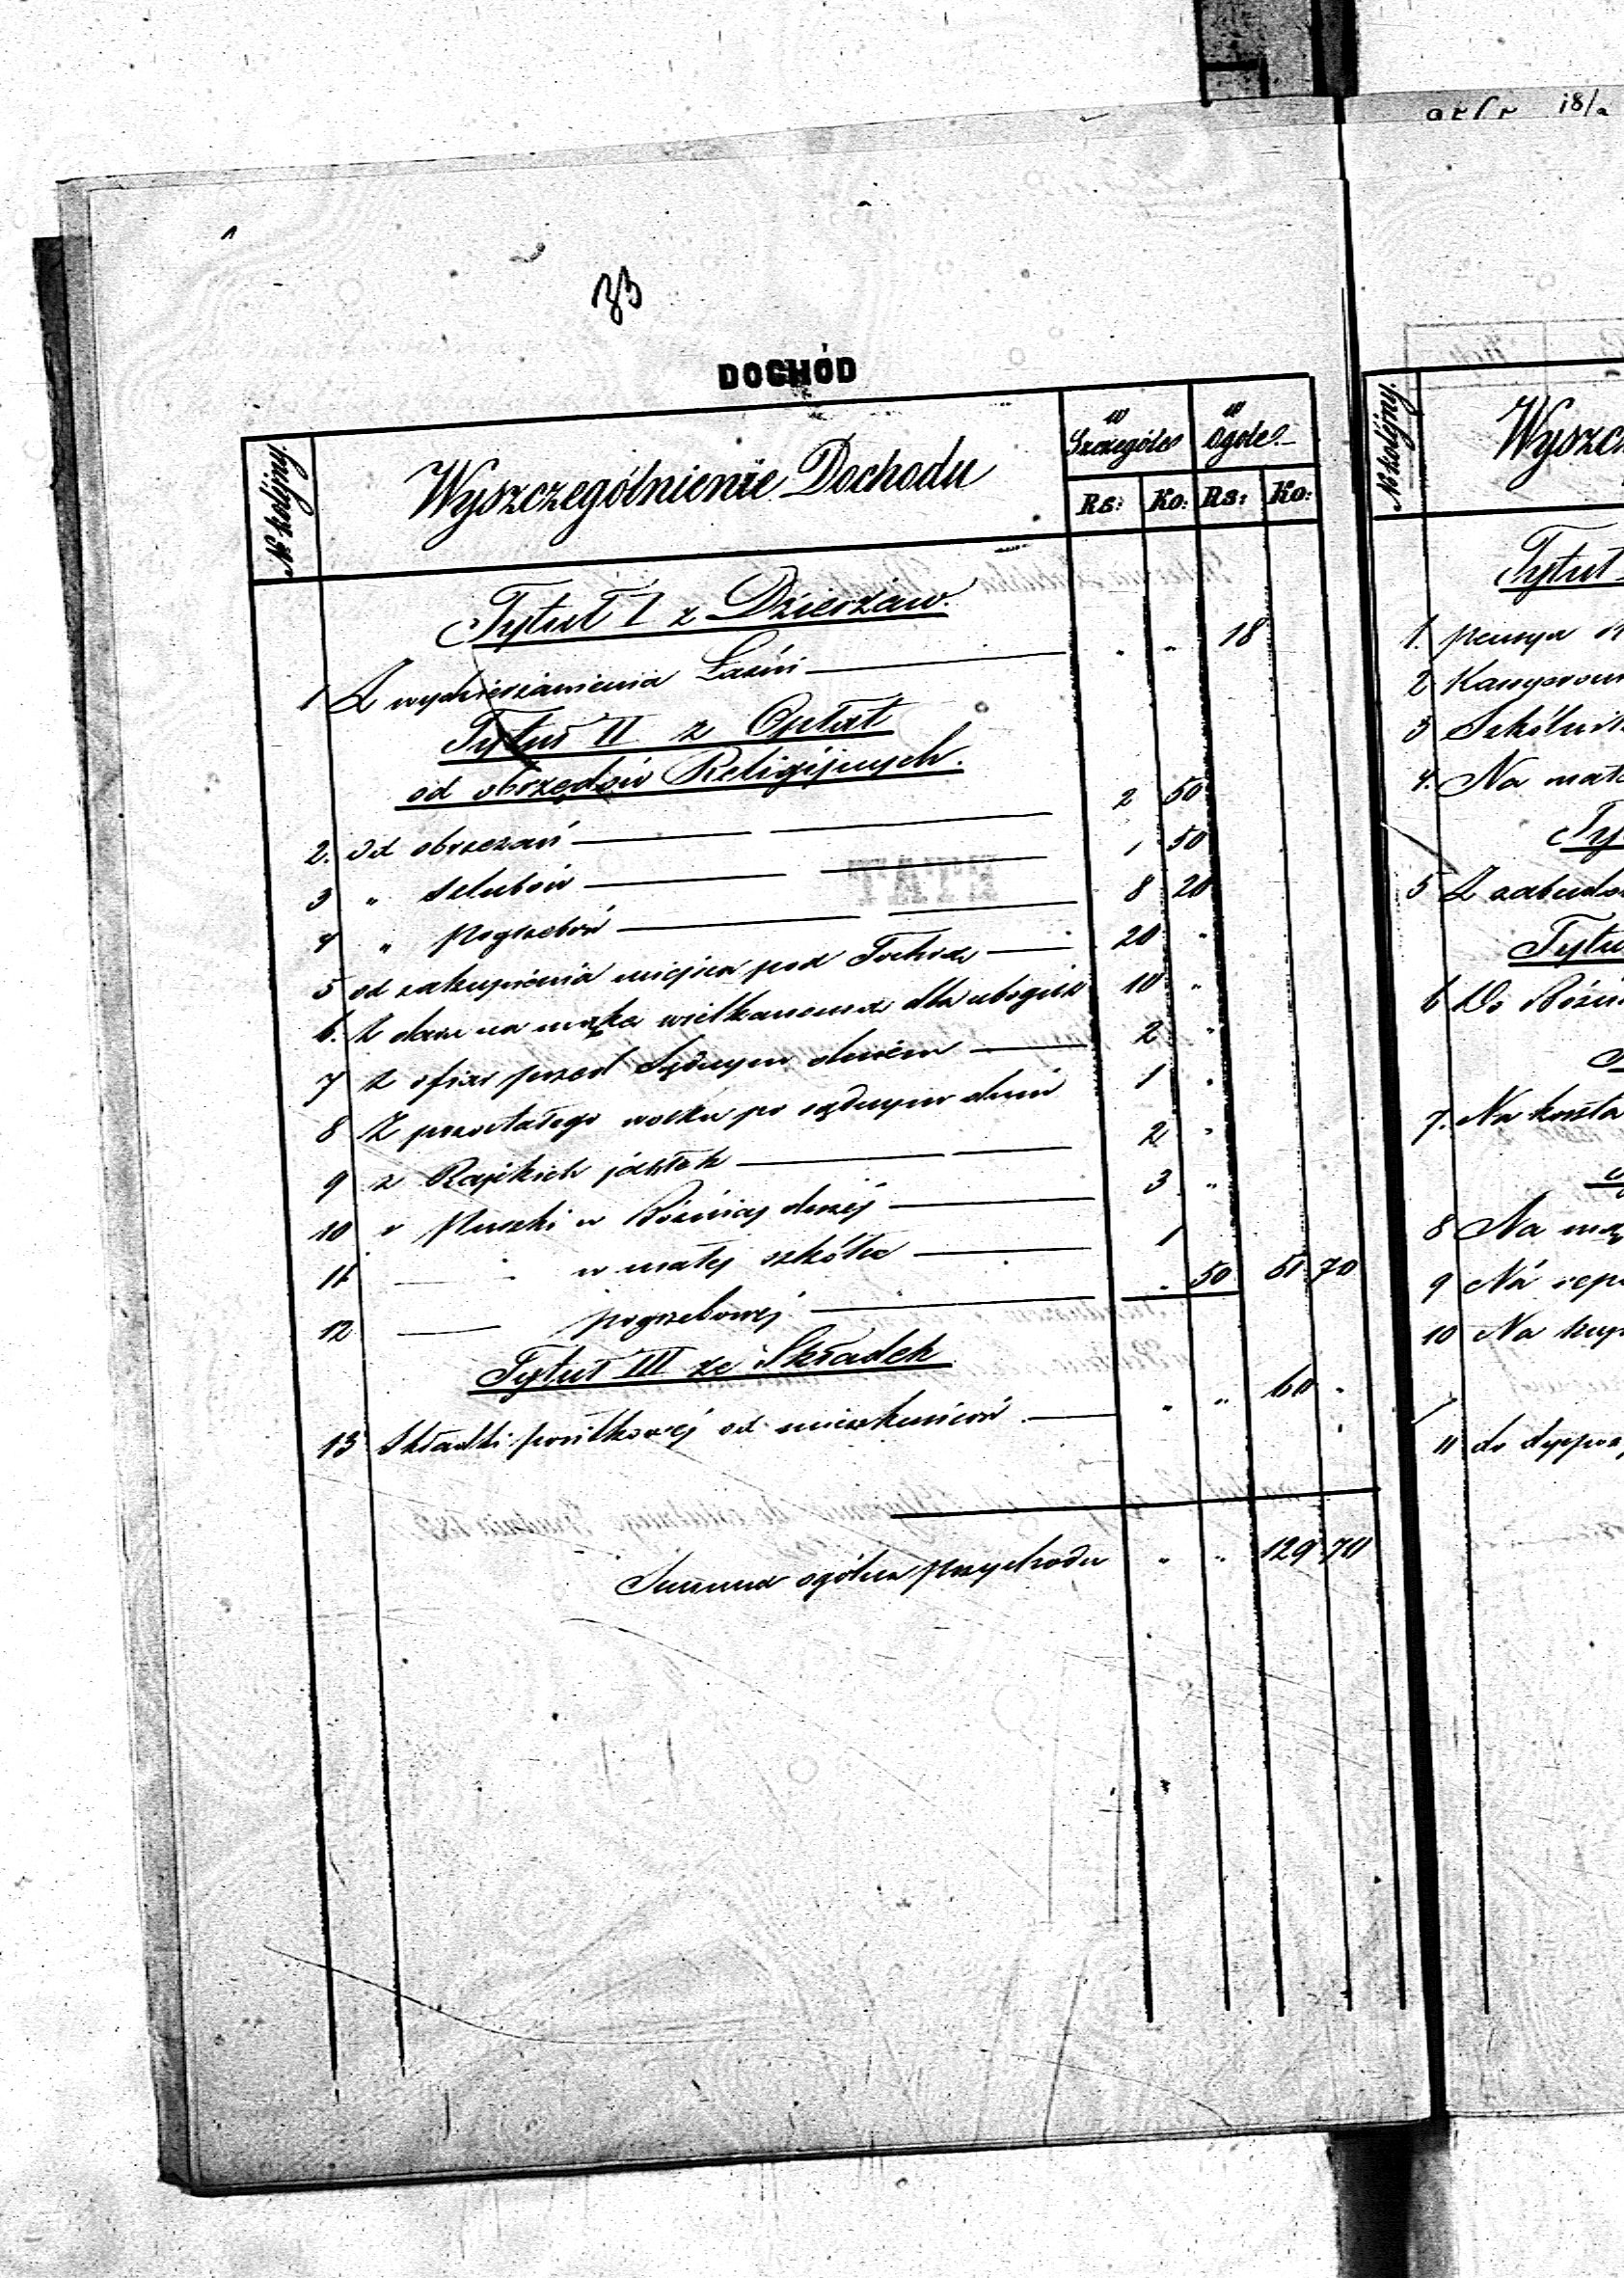 18/2
33
DOCHÓD
№ kolejny.
Wyszczególnienie Dochodu
w Szczególe
w Ogóle
Rs: Ko: Rs: Ko:
Tytuł I z Dzierżaw.
1 Z wydzierżawienia Łaźni " " 18
Tytuł II z Opłat
od obrzędów Religijnych.
2. Od obrzezań 2 50
3 " Szlubów 1 50
4 " Pogrzebów 8 20
5 od zakupienia miejsca pod 20 "
6. Z daru na mąkę wielkanocną dla ubogich 10 "
7 Z ofiar przed Sądnym dniem 2 "
8 Z pozostałego wosku po sądnym dniu 1 "
9 z Rajskich jabłek 2 "
10 " Puszki w Bóżnicy dużej 3 "
11 w małej szkółce 1
12 pogrzebowej " 50 51 70
Tytuł III ze Składek
13 Składki posiłkowej od mieszkańców " " 60 "
Summa ogólna przychodu " " 129 70
№ kolejny.
Wyszcz
Tytuł
1. pensya
2
3 Szkólni
4. Na
5 Z zabud
Tytu
6 Do Bóżni
7. Na koszta
8 Na mą
9 Na rep
10 Na kup
11 do dyspoz